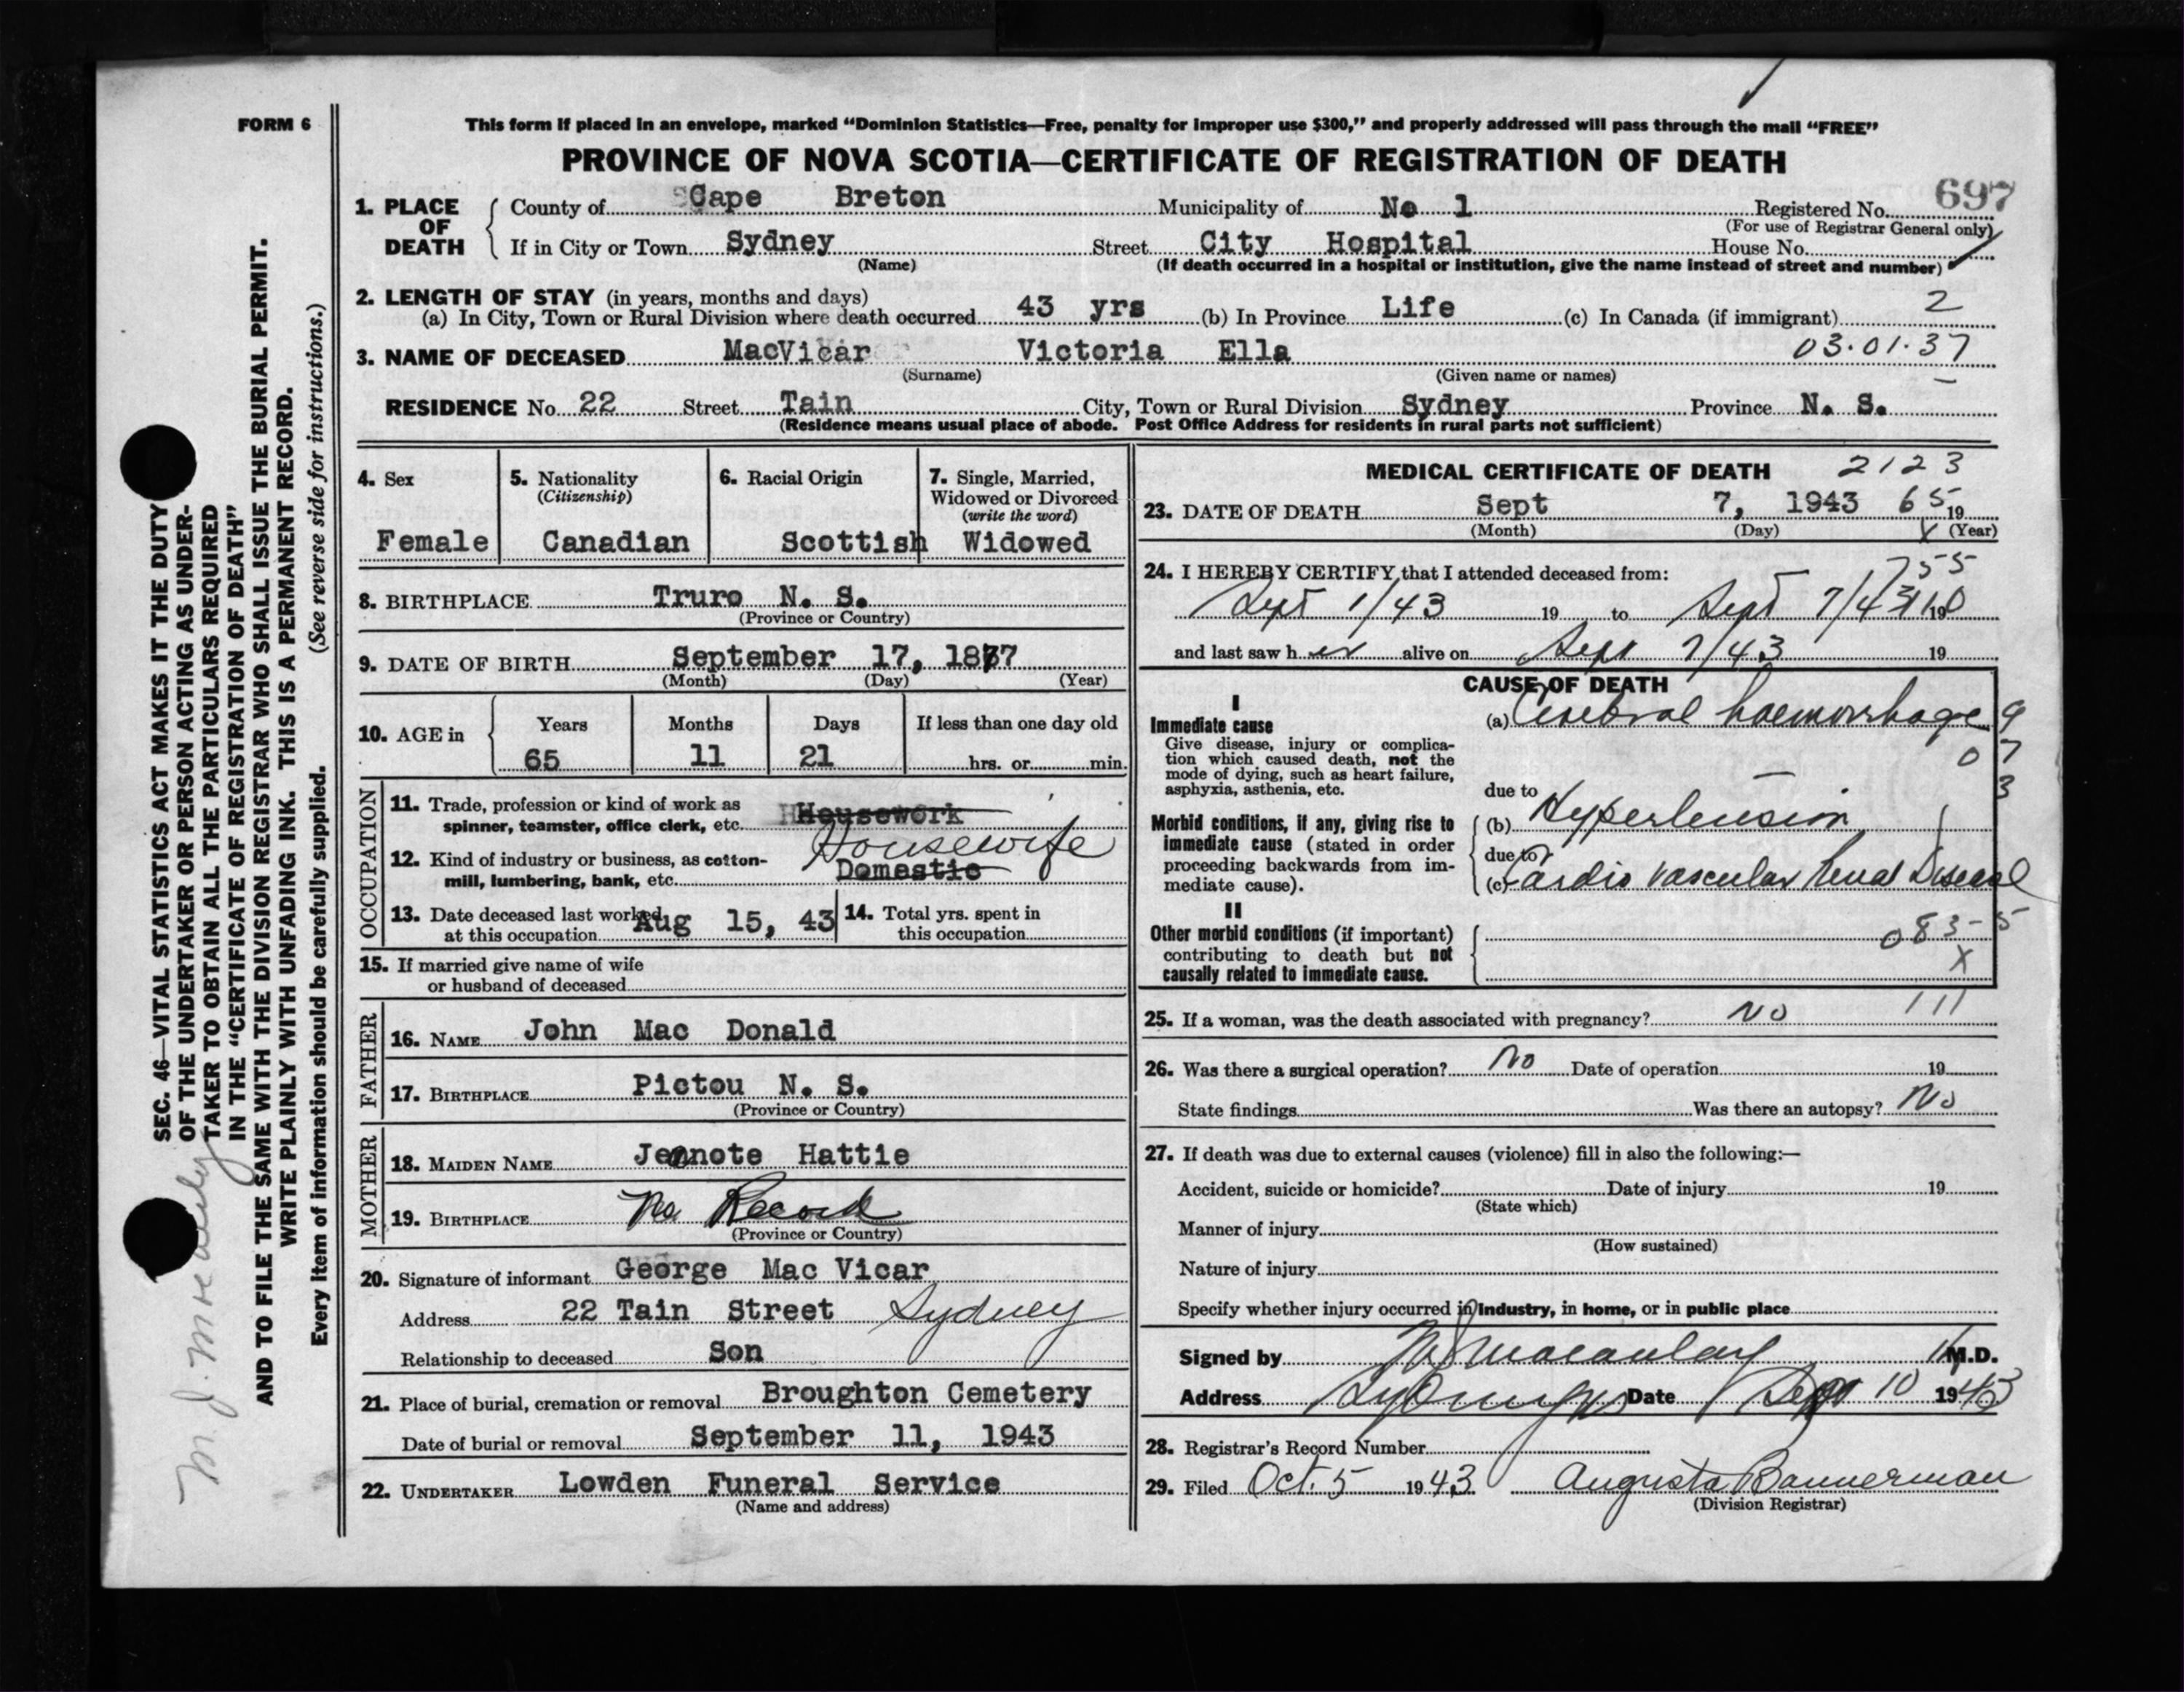 FORM 6
This form if placed in an envelope, marked “Dominion Statistics—Free, penalty for improper use $300,” and properly addressed will pass through the mail “FREE”
PROVINCE OF NOVA SCOTIA—CERTIFICATE OF REGISTRATION OF DEATH
697
1. PLACE OF DEATH
County of Cape Breton Municipality of No 1 Registered No.
(For use of Registrar General only)
If in City or Town Sydney Street City Hospital House No.
(Name) (If death occurred in a hospital or institution, give the name instead of street and number)
2. LENGTH OF STAY (in years, months and days)
(a) In City, Town or Rural Division where death occurred 43 yrs (b) In Province Life (c) In Canada (if immigrant) 2
3. NAME OF DECEASED MacVicar Victoria Ella 03.01.37
(Surname) (Given name or names)
RESIDENCE No. 22 Street Tain City, Town or Rural Division Sydney Province N. S.
(Residence means usual place of abode. Post Office Address for residents in rural parts not sufficient)
4. Sex
Female
5. Nationality
(Citizenship)
Canadian
6. Racial Origin
Scottish
7. Single, Married,
Widowed or Divorced
(write the word)
Widowed
8. BIRTHPLACE Truro N. S.
(Province or Country)
9. DATE OF BIRTH September 17, 1877
(Month) (Day) (Year)
10. AGE in
Years Months Days If less than one day old
65 11 21 hrs. or min.
OCCUPATION
11. Trade, profession or kind of work as Housework
spinner, teamster, office clerk, etc.
Housewife
12. Kind of industry or business, as cotton-
mill, lumbering, bank, etc. Domestic
13. Date deceased last worked
at this occupation Aug 15, 43
14. Total yrs. spent in
this occupation
15. If married give name of wife
or husband of deceased
FATHER
16. NAME John Mac Donald
17. BIRTHPLACE Pictou N. S.
(Province or Country)
MOTHER
18. MAIDEN NAME Jeanote Hattie
19. BIRTHPLACE No Record
(Province or Country)
20. Signature of informant George Mac Vicar
Address 22 Tain Street Sydney
Relationship to deceased Son
21. Place of burial, cremation or removal Broughton Cemetery
Date of burial or removal September 11, 1943
22. UNDERTAKER Lowden Funeral Service
(Name and address)
MEDICAL CERTIFICATE OF DEATH 2123
23. DATE OF DEATH Sept 7, 1943 65 19
(Month) (Day) X (Year)
24. I HEREBY CERTIFY that I attended deceased from: 755
Sept 1/43 19 to Sept 7/43 19
and last saw h er alive on Sept 7/43 19
CAUSE OF DEATH
I
Immediate cause
Give disease, injury or complica-
tion which caused death, not the
mode of dying, such as heart failure,
asphyxia, asthenia, etc.
(a) Cerebral haemorrhage 9
0 7
3
due to
Morbid conditions, if any, giving rise to
immediate cause (stated in order
proceeding backwards from im-
mediate cause).
(b) Hypertension
due to
(c) Cardio vascular Renal Disease
II
Other morbid conditions (if important)
contributing to death but not
causally related to immediate cause.
083-5
X
25. If a woman, was the death associated with pregnancy? No 111
26. Was there a surgical operation? No Date of operation 19
State findings Was there an autopsy? No
27. If death was due to external causes (violence) fill in also the following:—
Accident, suicide or homicide? Date of injury 19
(State which)
Manner of injury
(How sustained)
Nature of injury
Specify whether injury occurred in industry, in home, or in public place
Signed by M J Macaulay M.D.
Address Sydney Date Sept 10 1943
28. Registrar's Record Number
29. Filed Oct. 5 1943 Augusta Bannerman
(Division Registrar)
SEC. 46—VITAL STATISTICS ACT MAKES IT THE DUTY
OF THE UNDERTAKER OR PERSON ACTING AS UNDER-
TAKER TO OBTAIN ALL THE PARTICULARS REQUIRED
IN THE “CERTIFICATE OF REGISTRATION OF DEATH”
AND TO FILE THE SAME WITH THE DIVISION REGISTRAR WHO SHALL ISSUE THE BURIAL PERMIT.
WRITE PLAINLY WITH UNFADING INK. THIS IS A PERMANENT RECORD.
Every item of information should be carefully supplied. (See reverse side for instructions.)